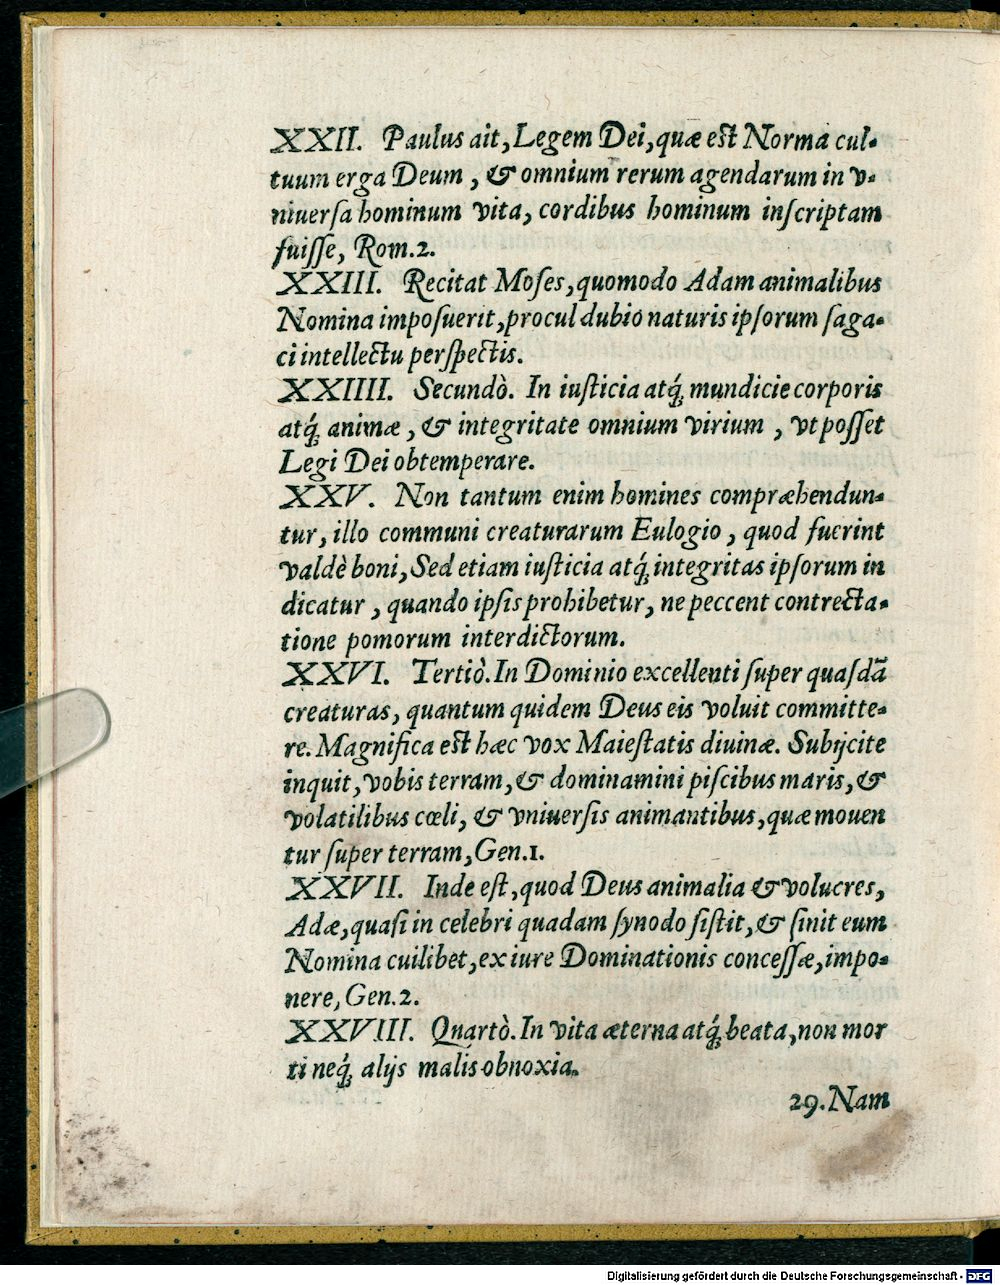 XXII. Paulus ait, Legem Dei, quæ est Norma cul-
tuum erga Deum, & omnium rerum agendarum in v-
niuerſa hominum vita, cordibus hominum inſcriptam
fuiſſe, Rom.2.
XXIII. Recitat Moſes, quomodo Adam animalibus
Nomina impoſuerit, procul dubio naturis ipſorum ſaga-
ci intellectu perſpectis.
XXIIII. Secundò. In iuſticia atq́; mundicie corporis
atq́; animæ, & integritate omnium virium, vt poſſet
Legi Dei obtemperare.
XXV. Non tantum enim homines compræhendun-
tur, illo communi creaturarum Eulogio, quod fuerint
valdè boni, Sed etiam iuſticia atq́; integritas ipſorum in
dicatur, quando ipſis prohibetur, ne peccent contrecta-
tione pomorum interdictorum.
XXVI. Tertiò. In Dominio excellenti ſuper quaſdã
creaturas, quantum quidem Deus eis voluit committe-
re. Magnifica est hæc vox Maieſtatis diuinæ. Subijcite
inquit, vobis terram, & dominamini piſcibus maris, &
volatilibus cœli, & vniuerſis animantibus, quæ mouen
tur ſuper terram, Gen.1.
XXVII. Inde eſt, quod Deus animalia & volucres,
Adæ, quaſi in celebri quadam ſynodo ſiſtit, & ſinit eum
Nomina cuilibet, ex iure Dominationis conceſſæ, impo-
nere, Gen.2.
XXVIII. Quartò. In vita æterna atq́; beata, non mor
ti neq́; alijs malis obnoxia.
29. Nam
Digitalisierung gefördert durch die Deutsche Forschungsgemeinschaft - DFG